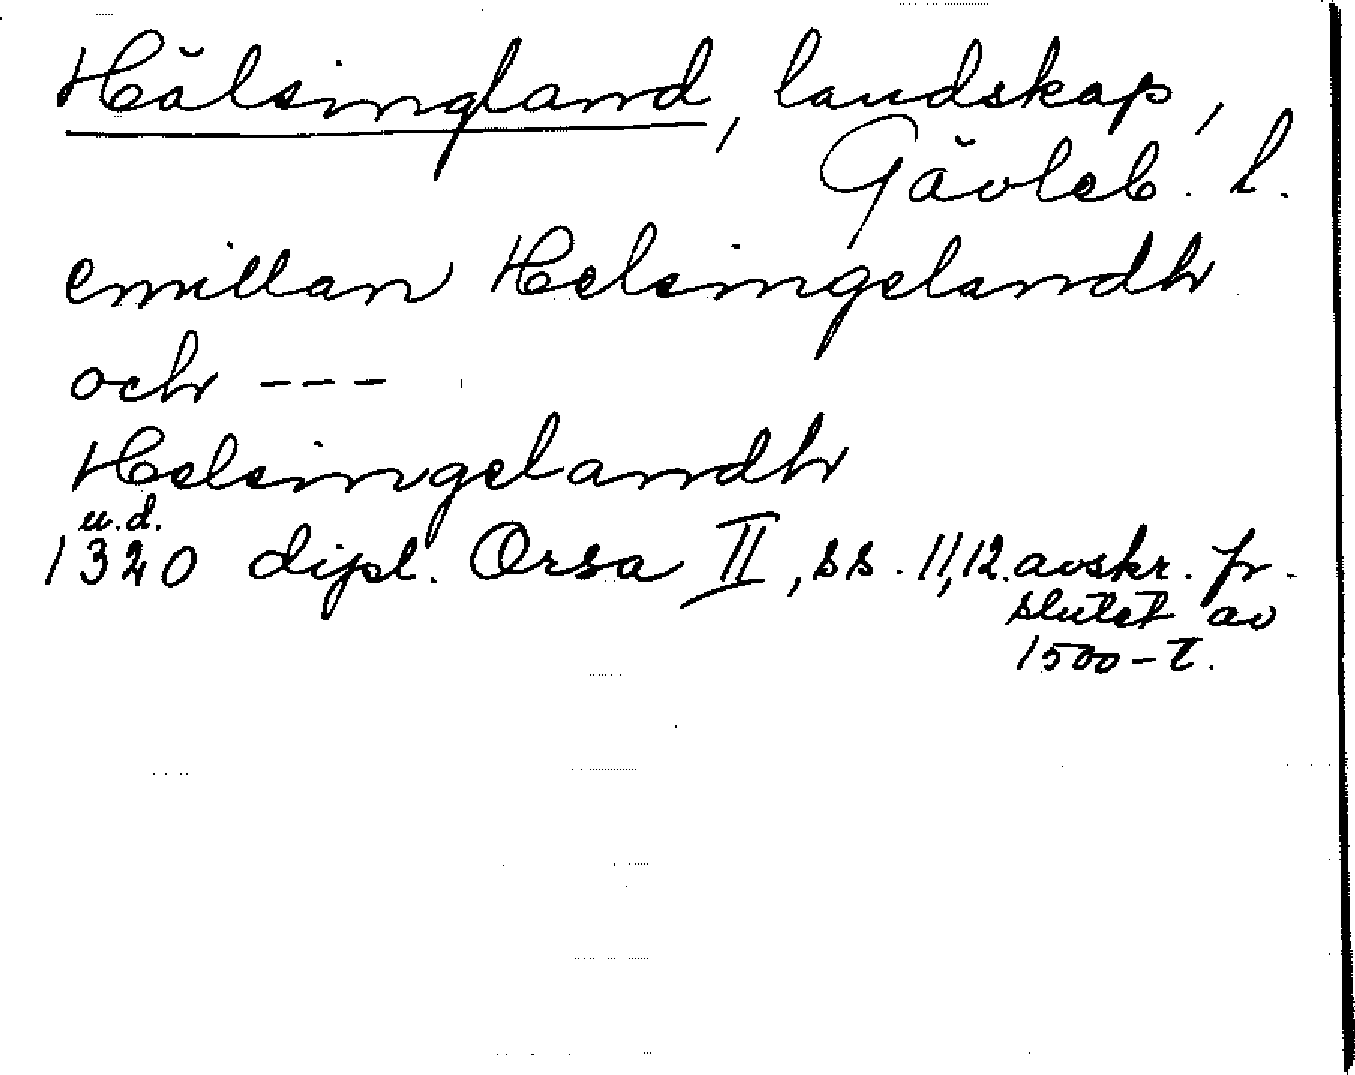 Hälsingland, landskap,
Gävleb. l.
emillan Helsingelandh
och ---
Helsingelandh
u.d.
1320 dipl. Orsa II, ss. 11, 12. avskr. fr.
slutet av
1500-t.